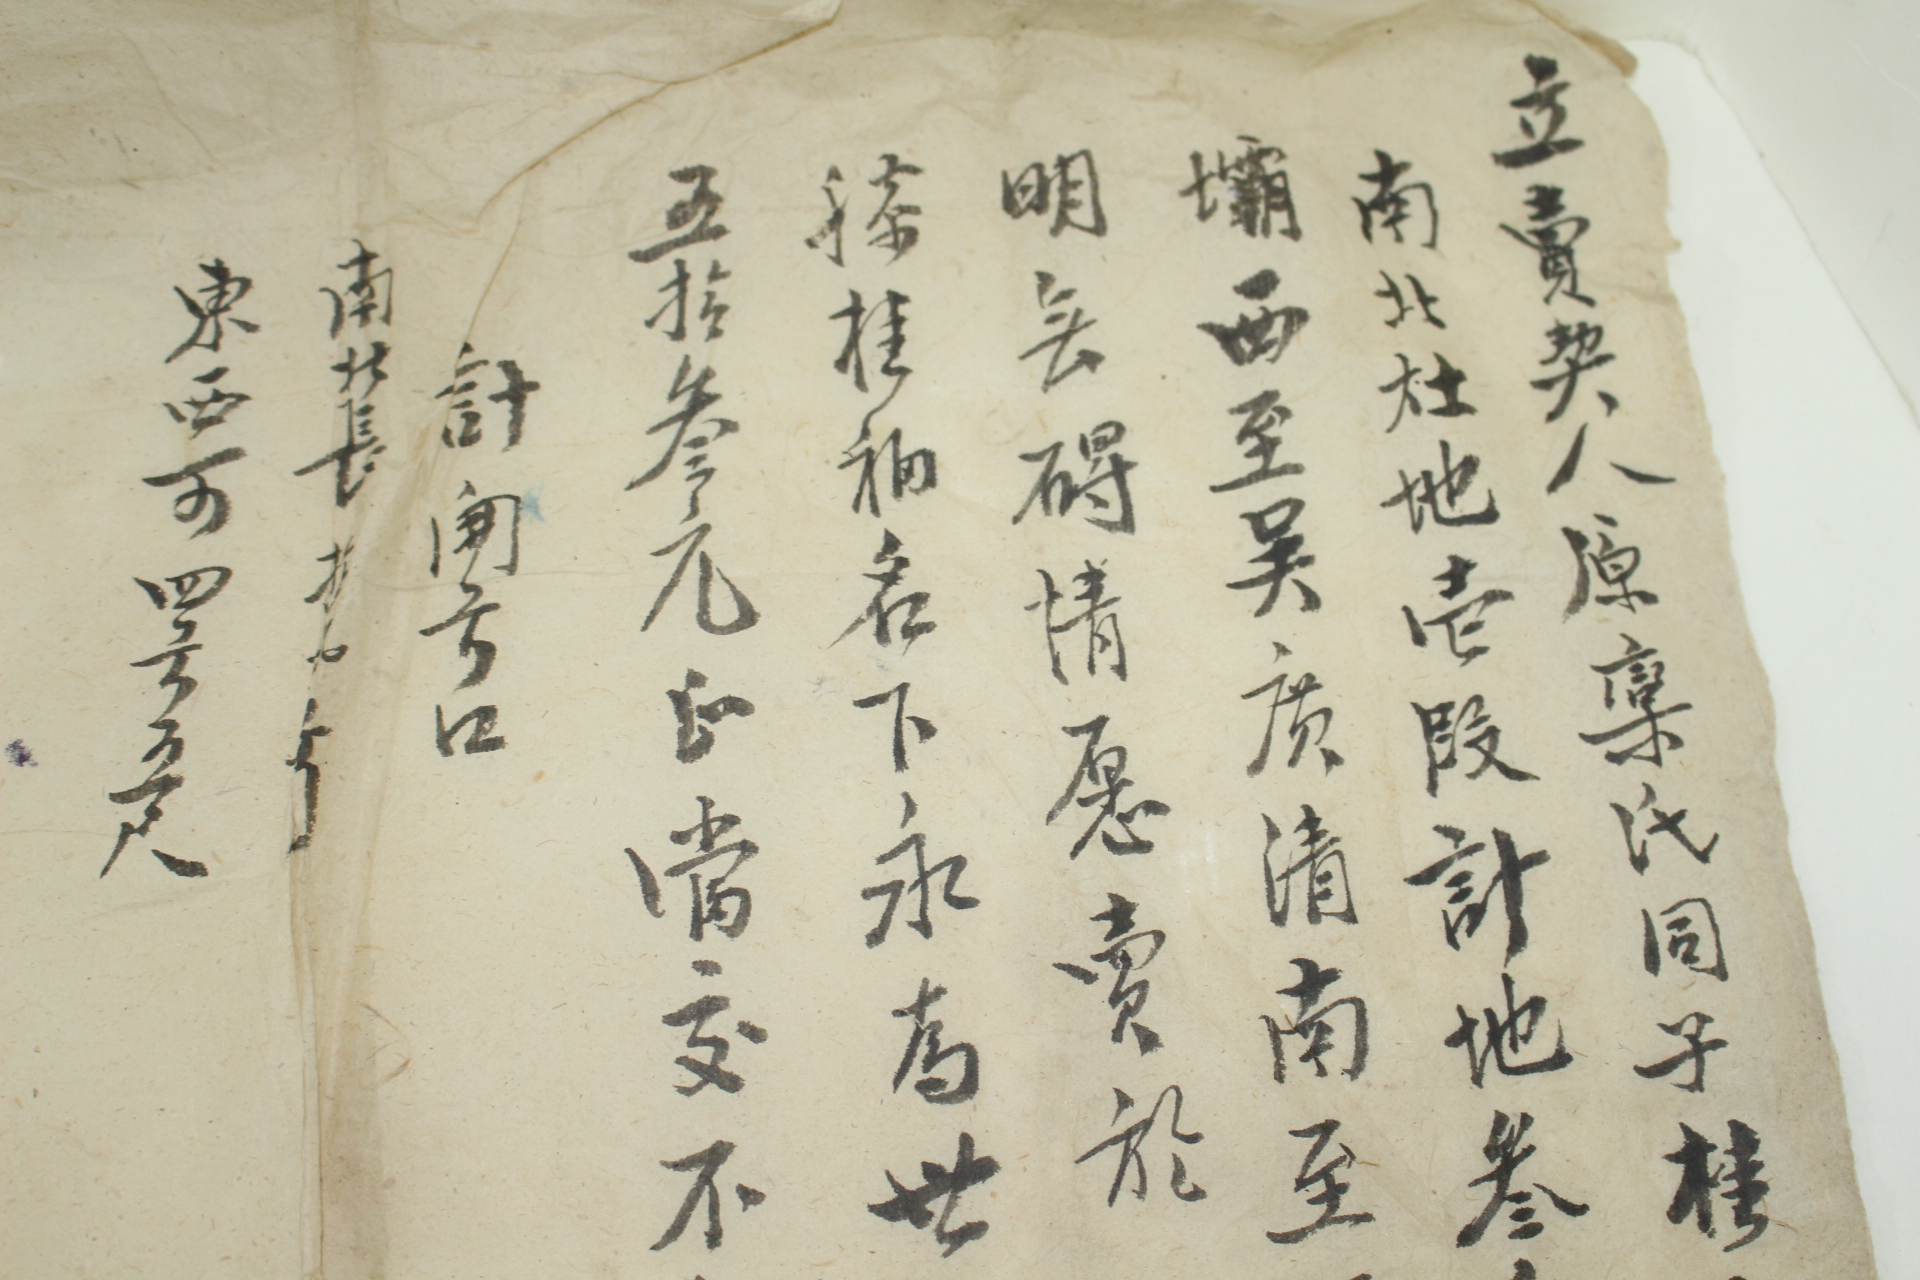 立賣契人原欒氏同子桂
南北灶地壹段計地叁
壩西至吴广清南至
明无碍情愿賣於
桂袖名下永為世
五拾叁元正當交不
計開弓口
南北長
東西可四弓五尺